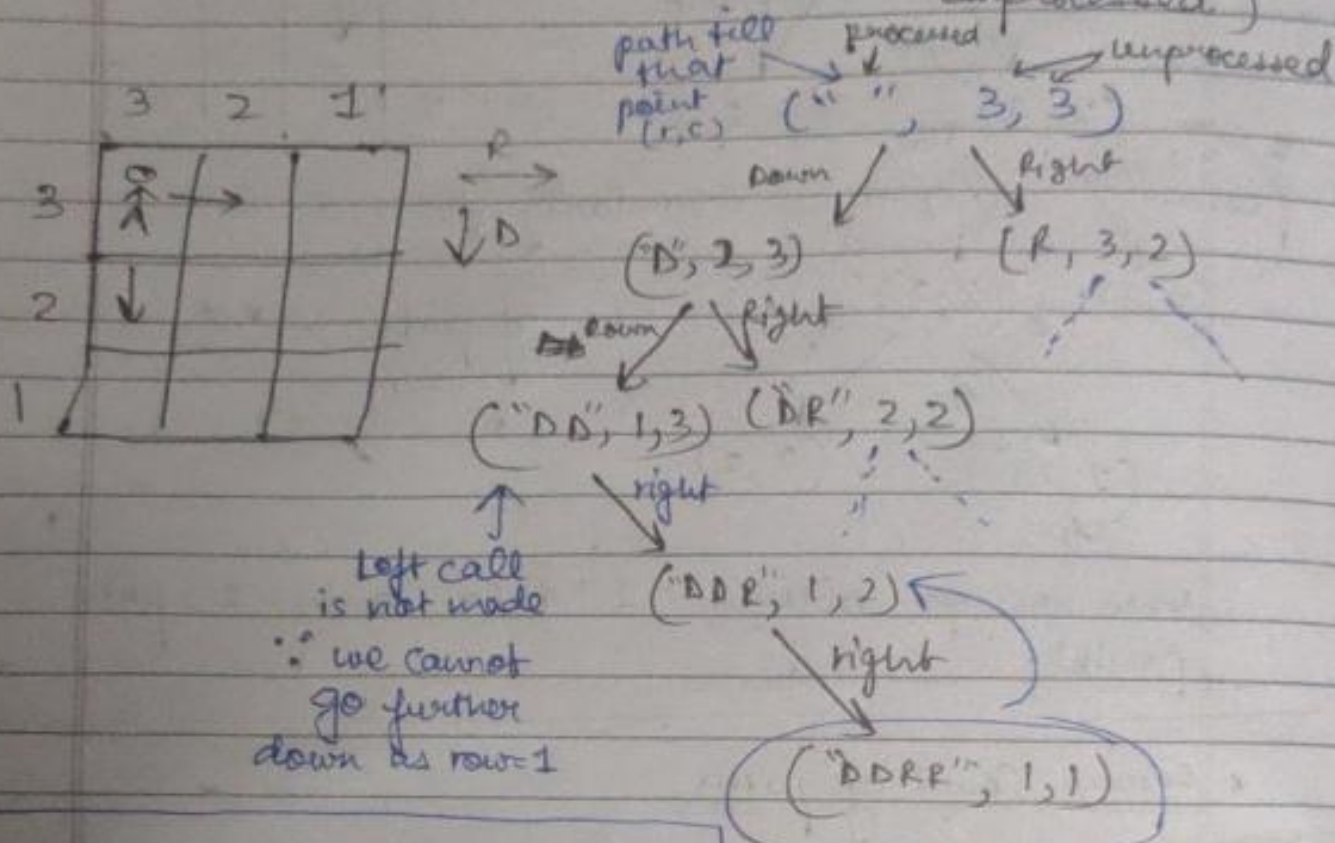 processed)
path till
that
point
(r,c)
processed
unprocessed
(" ", 3, 3)
3 2 1
3
2
1
R
D
Down
Right
("D", 2, 3)
(R, 3, 2)
Down
Right
("DD", 1,3)
("DR", 2,2)
right
Left call
is not made
∵ we cannot
go further
down as row=1
("DDR", 1, 2)
right
("DDRR", 1,1)